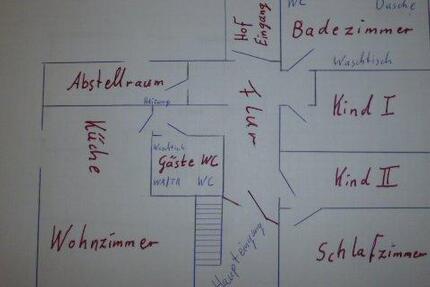 WC
Dusche
Hof
Eingang
Badezimmer
Waschtisch
Abstellraum
Heizung
Flur
Kind I
Küche
Waschtisch
Gäste WC
WA/TR WC
Kind II
Wohnzimmer
Haupteingang
Schlafzimmer